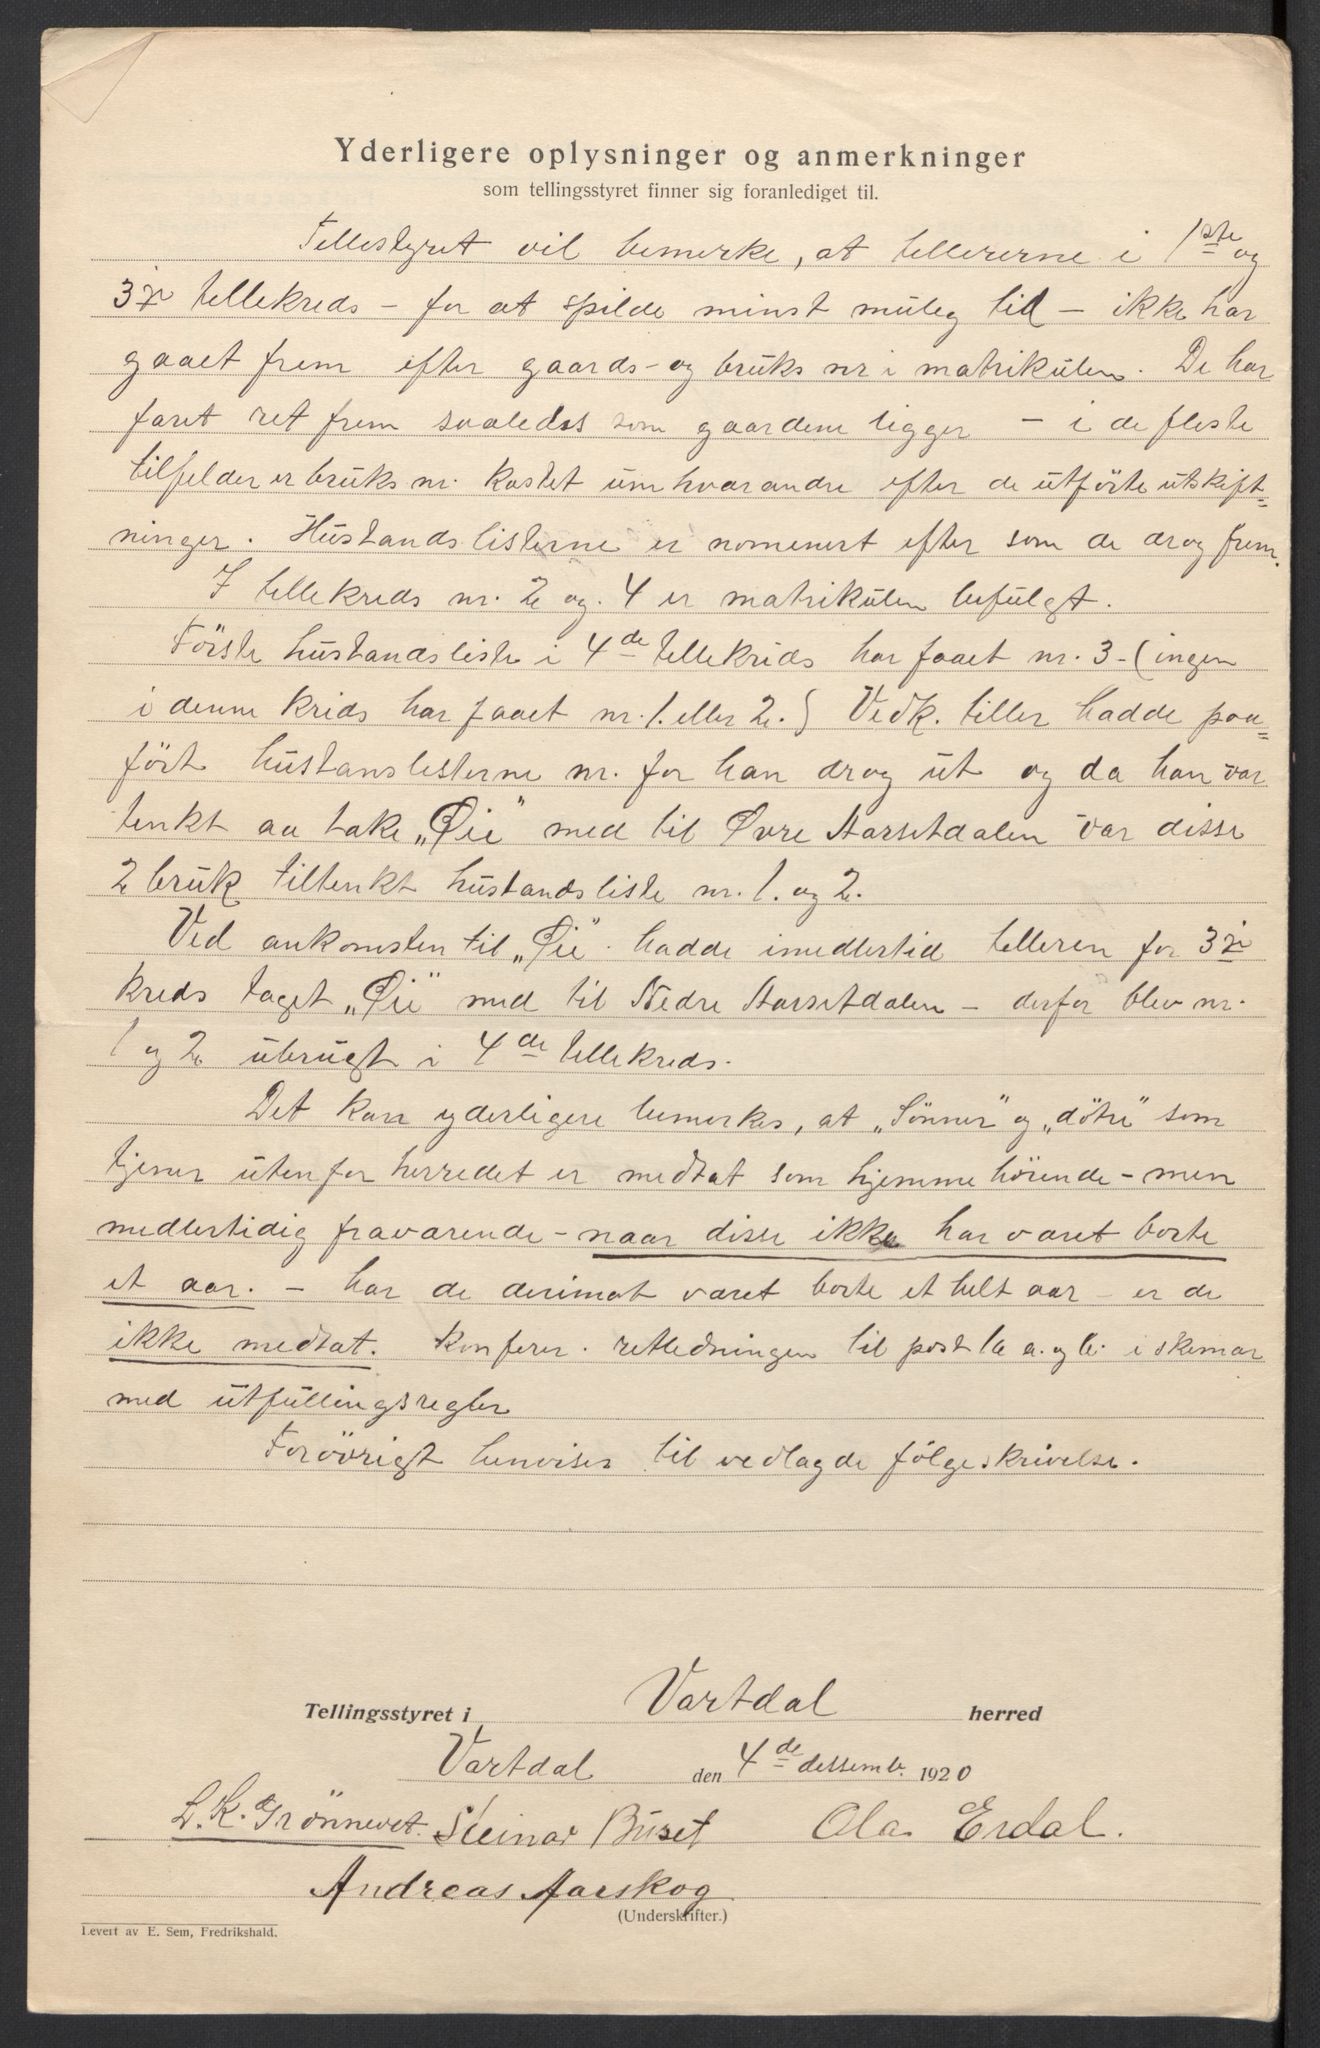 Yderligere oplysninger og anmerkninger
som tellingsstyret finner sig foranlediget til.
Tellestyret vil bemerke, at tellererne i 1ste og
3je tellekreds – for at spilde minst muleg tid – ikke har
gaaet frem efter gaards- og bruks nr i matrikulen. De har
faret ret frem saaledes som gaardene ligger – i de fleste
tilfelder er bruks nr. kastet um hvarandre efter de utförte utskift=
ninger. Hustandslisterne er nomenert efter som de drog frem.
I tellekreds nr. 2 og. 4 er matrikulen befulgt.
Förste hustandsliste i 4de tellekrids har faaet nr. 3 – (ingen
i denne krids har faaet nr. 1. eller 2.) Vedk. teller hadde paa=
fört hustanslisterne nr. for han drog ut og da han var
tenkt aa take „Øie" med til Øvre Aarsetdalen var disse
2 bruk tiltenkt hustandsliste nr. 1. og 2.
Ved ankomsten til „Øie" hadde imedlertid telleren for 3je
kreds taget „Øie" med til Nedre Aarsetdalen – derfor blev nr.
1 og 2 ubrugt i 4de tellekreds.
Det kan yderligere bemerkes, at „Sönner" og „dötre" som
tjener utenfor herredet er medtat som hjemmehörende – men
medlertidig fraværende – naar disse ikke har været borte
et aar. – har de derimot været borte et helt aar – er de
ikke medtat. Konferer. retledningen til post a. og b. i skemar
med utfullingsregler
Forövrigt henvises til vedlagde fölgeskrivelse.
Tellingsstyret i Vartdal herred
Vartdal den 4de dessemb. 1920
L. K. Grönnevet. Steinar Buset Ola Erdal.
Andreas Aarskog
(Underskrifter.)
Levert av E. Sem, Fredrikshald.